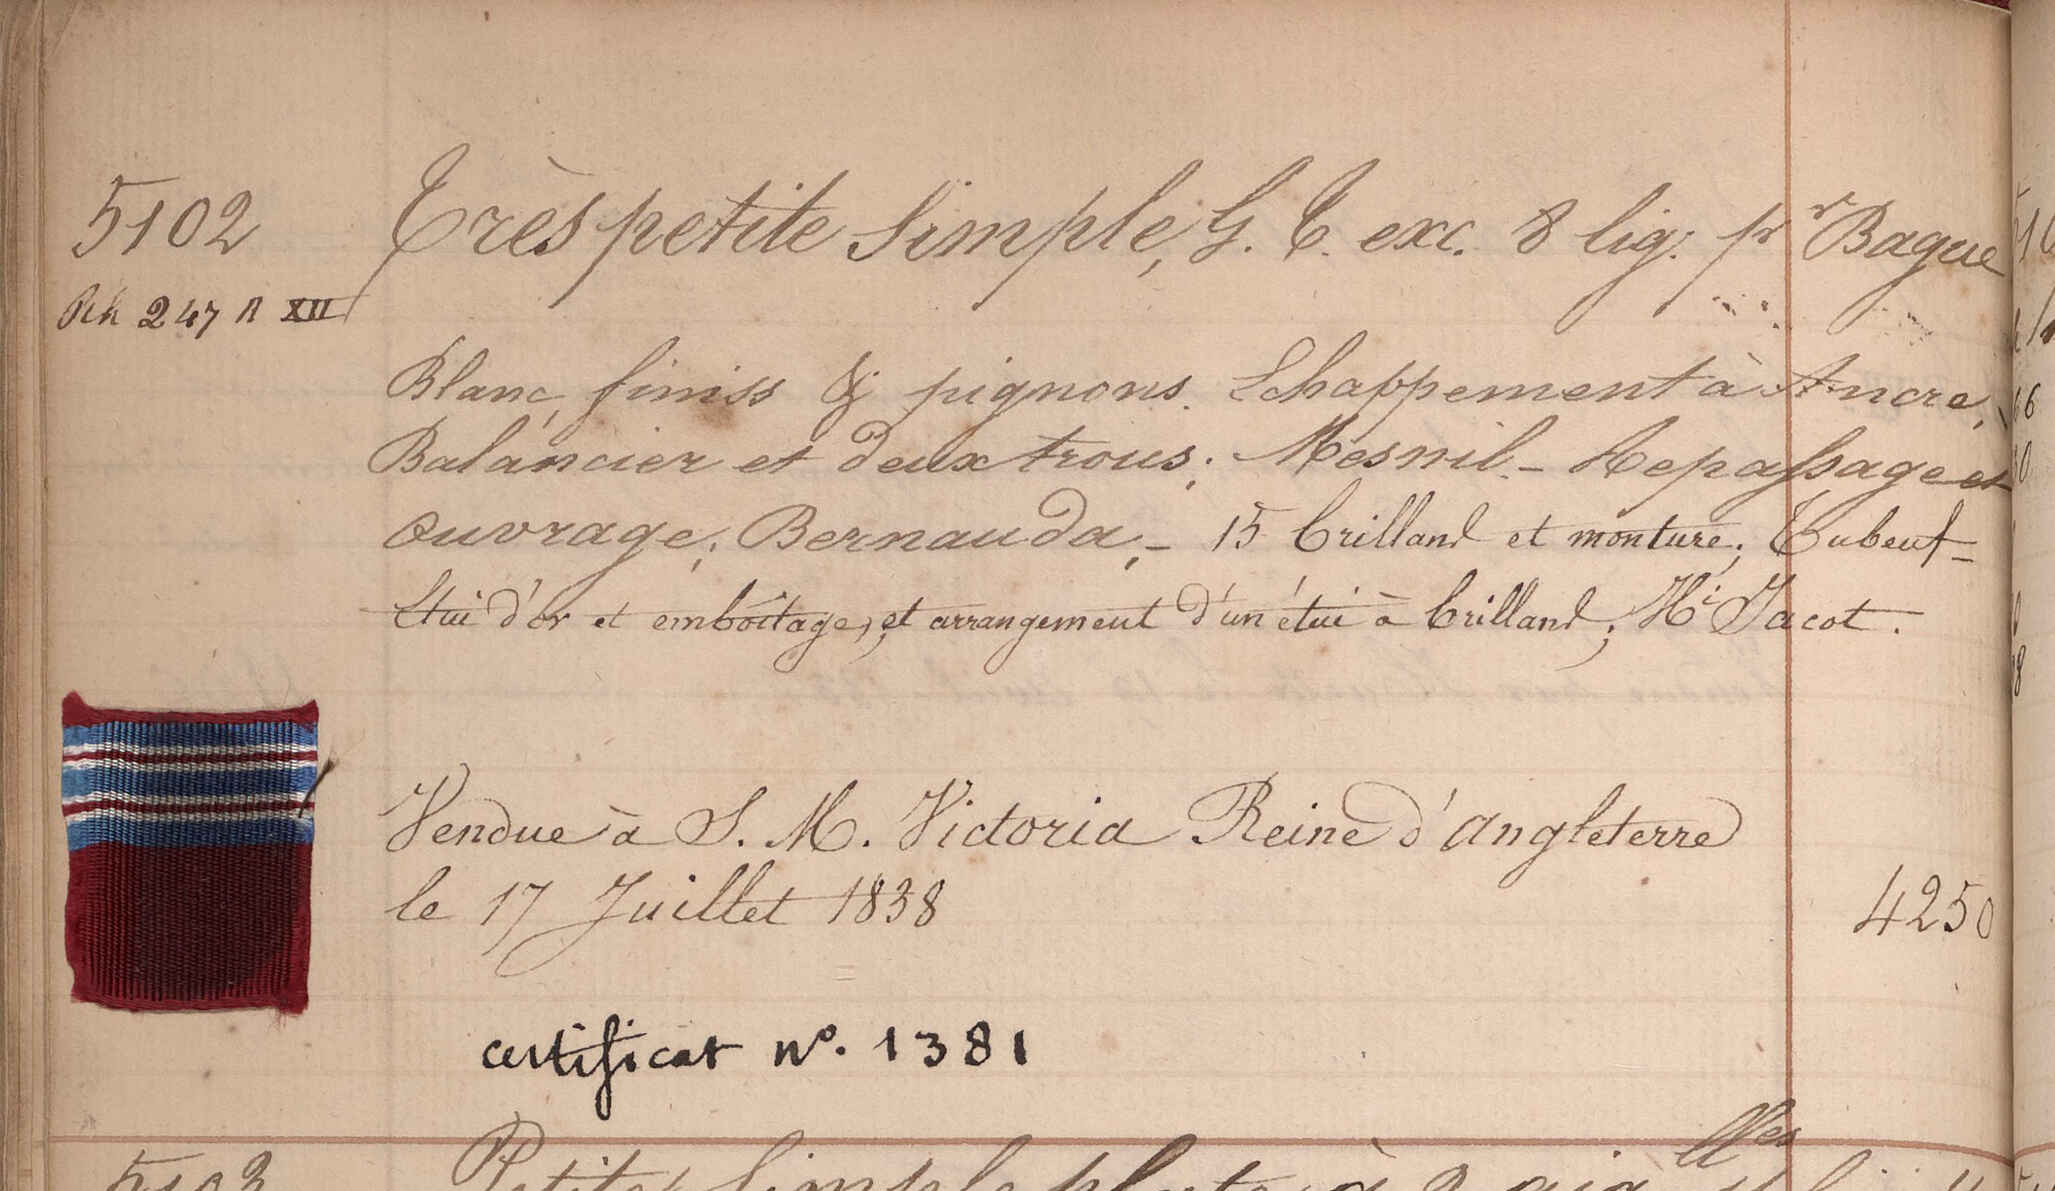 5102 Très petite Simple, G. T. exc. 8 lig. pr Bague
247 R XII
Blanc, finiss & pignons. Echappement à Ancre,
Balancier et deux trous; Mesnil - Repassage et
ouvrage; Bernauda, - 15 brilland et monture; Tubeuf -
Etui d'or et emboîtage, et arrangement d'un étui à brilland; Hi Jacot.
Vendue à S. M. Victoria Reine d'angleterre
le 17 Juillet 1838 4250
certificat no. 1381
5103 Petite Simple plate à 2 aig lles